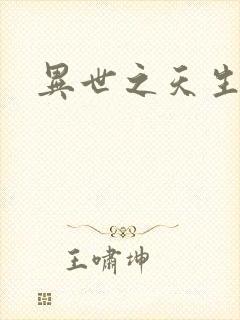 異世之天生
王啸坤